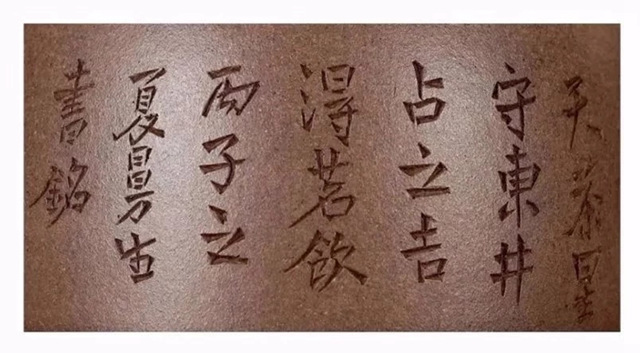 天茶星
守東井
占之吉
得茗飲
丙子之
夏曼生
書銘